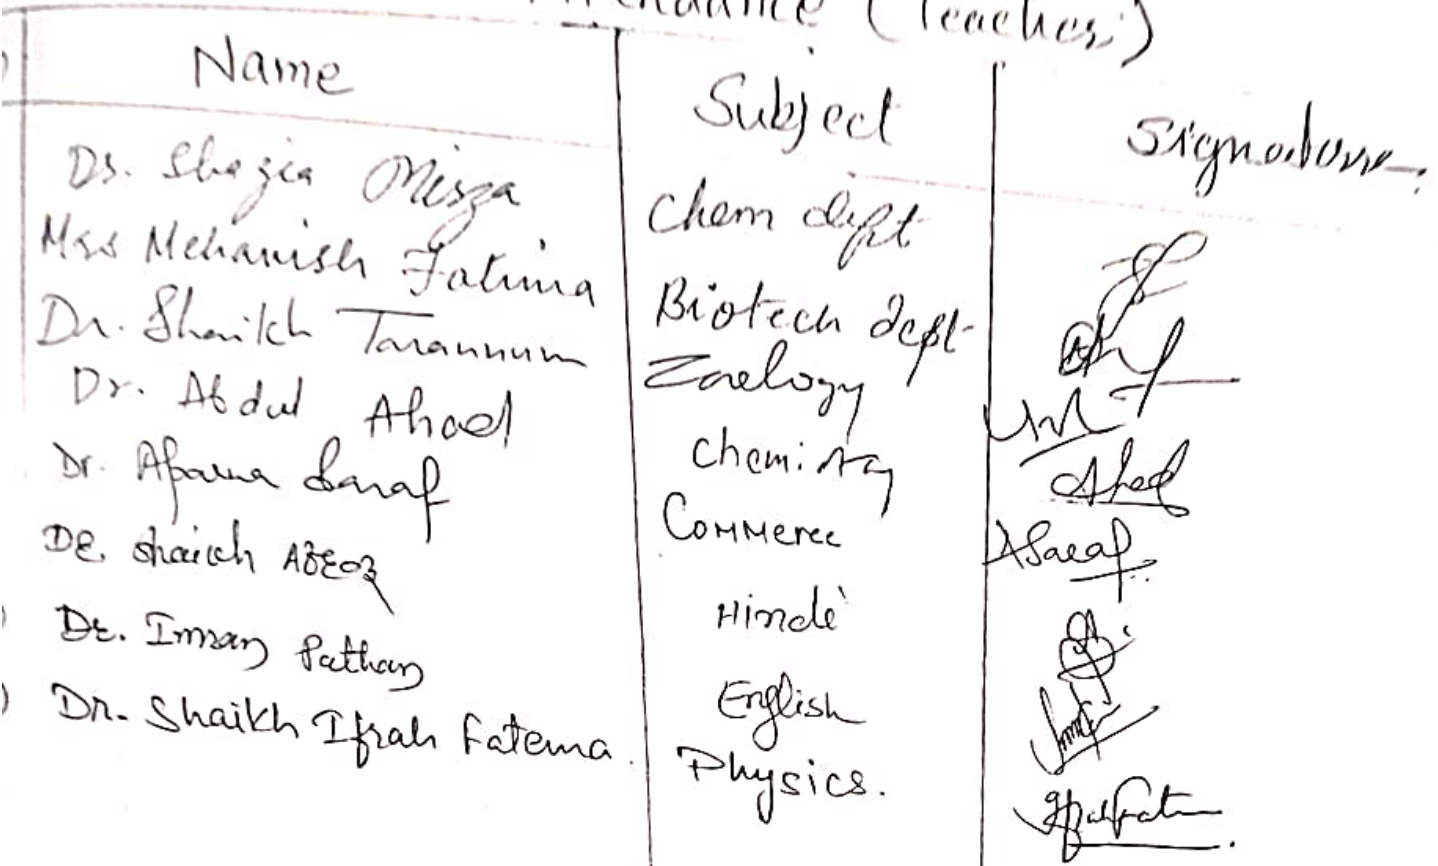 Attendance (Teachers)
Name Subject Signature
Dr. Shazia Mirza Chem dept
Mrs Mehavish Fatima Biotech dept
Dr. Shaikh Tarannum Zoology
Dr. Abdul Ahad Chemistry Ahad
Dr. Aparna Saraf Commerce ASaraf
Dr. Shaikh Afroz Hindi
Dr. Imran Pathan English
Dr. Shaikh Ifrah Fatema Physics.